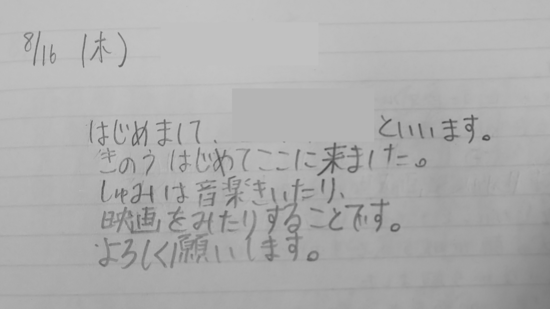 8/16 (木)
はじめまして、 といいます。
きのう はじめてここに来ました。
しゅみは音楽きいたり、
映画をみたりすることです。
よろしく願いします。